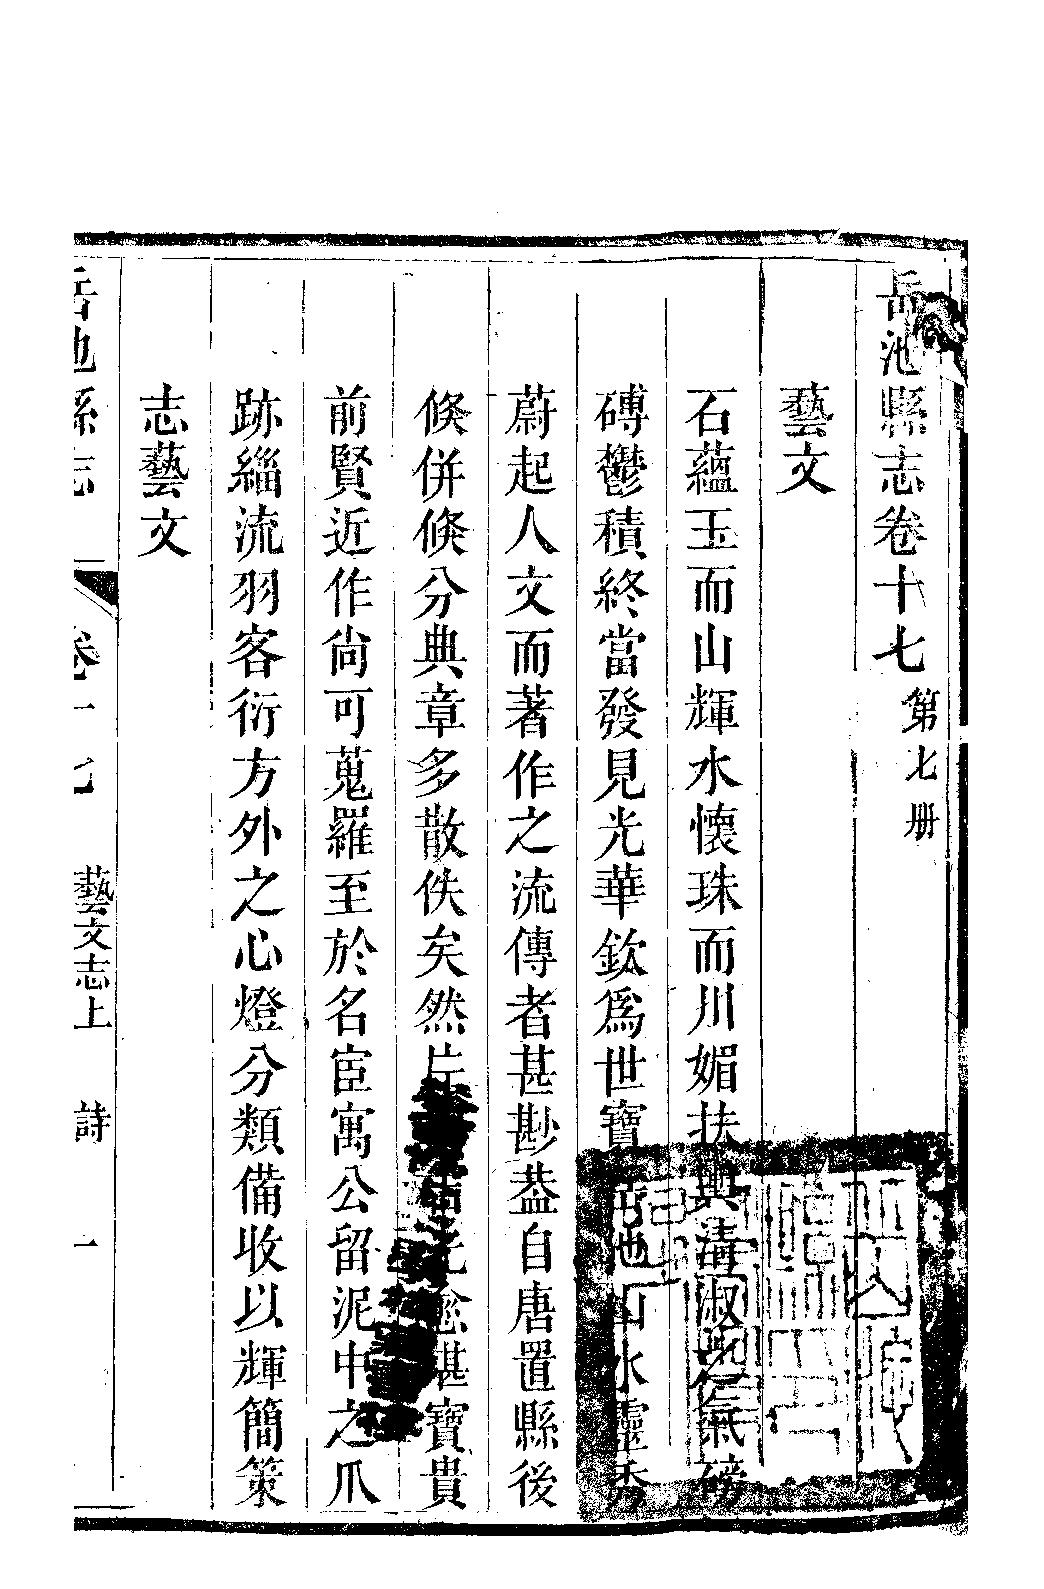 岳池縣志卷十七 第七册
藝文
石蘊玉而山輝水懷珠而川媚扶輿清淑之氣磅
礡鬱積終當發見光華欽爲世寶岳池山水靈秀
蔚起人文而著作之流傳者甚尠葢自唐置縣後
倏併倏分典章多散佚矣然片光愈堪寶貴
前賢近作尙可蒐羅至於名宦寓公留泥中之爪
跡緇流羽客衍方外之心燈分類備收以輝簡策
志藝文
岳池縣志 卷十七 藝文志上 詩 一